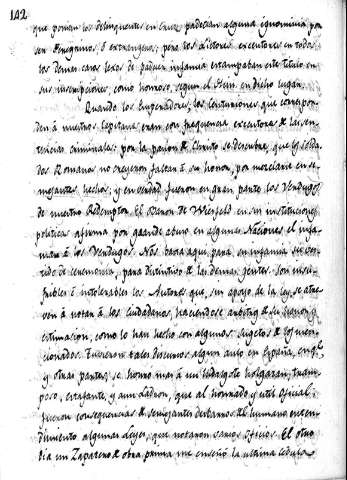 142
que ponian los delinquentes en Cruz, padecian alguna ignominia por
ser Peregrinos, ó extrangeros; pero los Lictores executores en todos
los demas casos, lexos de padecer infamia estampaban este titulo en
sus inscripciones, como honroso, segun el Items en dicho lugar.
Quando los Emperadores, los Centuriones, que correspon-
den á nuestros Capitanes, eran con frequencia executores de las sen-
tencias criminales: por la pasion de Christo se descubre, que los solda-
dos Romanos no creyeron faltar á su honor, por mezclarse en se-
mejantes hechos; y en verdad, fueron en gran parte los Verdugos
de nuestro Redemptor. El Baron de Wiesfeld en sus instituciones
politicas afirma por grande abuso en algunas Naciones el infa-
mar á los Verdugos. No basta aqui para su infamia su ves-
tido de ceremonia, para distintivo de las demas gentes. Son insu-
fribles é intolerables los Autores que, sin apoyo de la ley, se atre-
ven á notar á los Ciudadanos, haciendose arbitros de su honor, y
estimacion, como lo han hecho con algunos sugetos de los men-
cionados. Tuvieron tales discursos algun auto en España,
y otras partes; se honró mas á un hidalgote holgazan, tram-
poso, estafante, y aun ladron, que al honrado y util oficial:
fueron consequencias de semejantes desbarros del humano enten-
dimiento algunas Leyes, que notaron varios oficios. El otro
dia un Zapatero de obra prima me enseñó la ultima Cedula